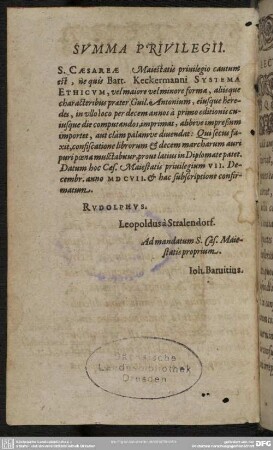 SVMMA PRIVILEGII.
S. CÆSAREÆ Maiestatis privilegio cautum
est, ne quis Bart. Keckermanni SYSTEMA
ETHICVM, vel maiore vel minore forma, aliisque
characteribus præter Guil. Antonium, eiusque hære-
des, in ullo loco per decem annos à primo editionis cu-
iusque die computandos, imprimat, aut alibi impressum
importet, aut clam palamve divendat: Qui secus fa-
xit, confiscatione librorum & decem marcharum auri
puri pœna mulctabitur, prout latius in Diplomate patet.
Datum hoc Cæs. Maiestatis privilegium VII. De-
cembr. anno MDCVII. & hac subscriptione confir-
matum.
RVDOLPHVS.
Leopoldus à Stralendorf.
Ad mandatum S. Cæs. Maie-
statis proprium.
Ioh. Barvitius.
Sächsische
Landesbibliothek
Dresden